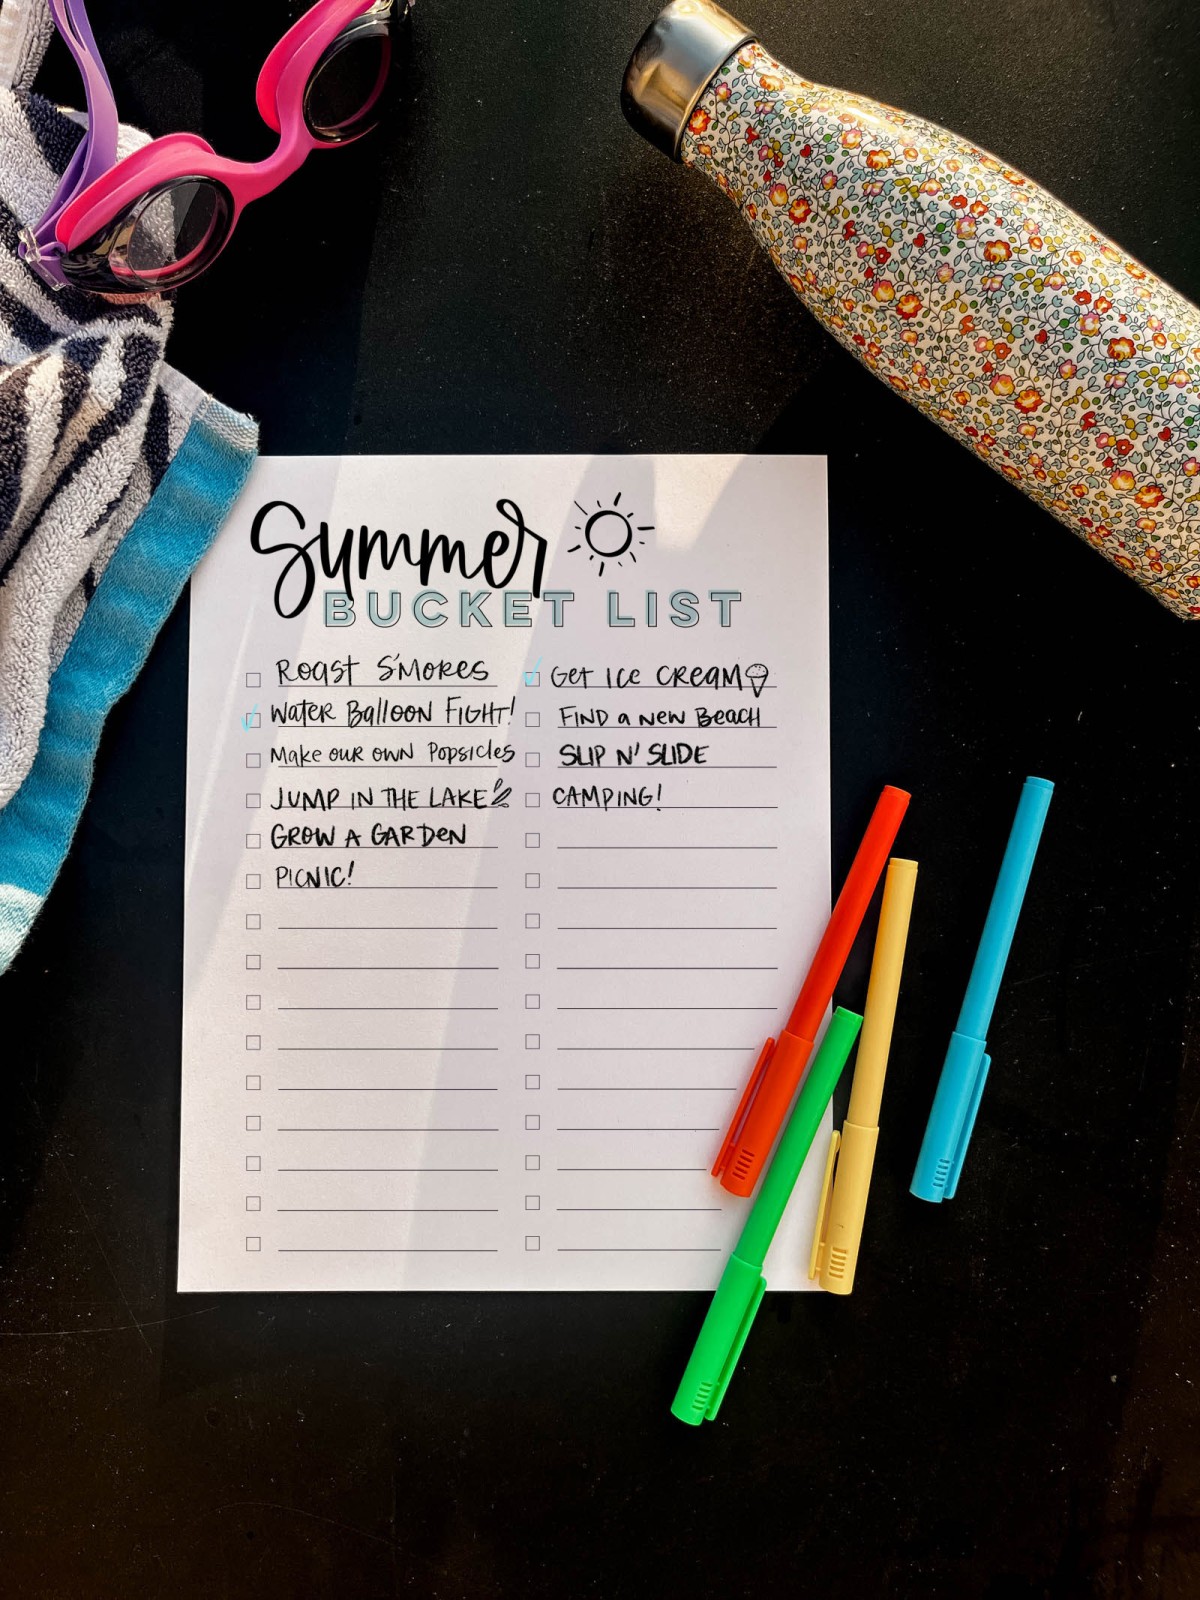 Summer
BUCKET LIST
ROAST S'MORES
WATER BALLOON FIGHT!
MAKE OUR OWN POPSICLES
JUMP IN THE LAKE
GROW A GARDEN
PICNIC!
GET ICE CREAM
FIND A NEW BEACH
SLIP N' SLIDE
CAMPING!